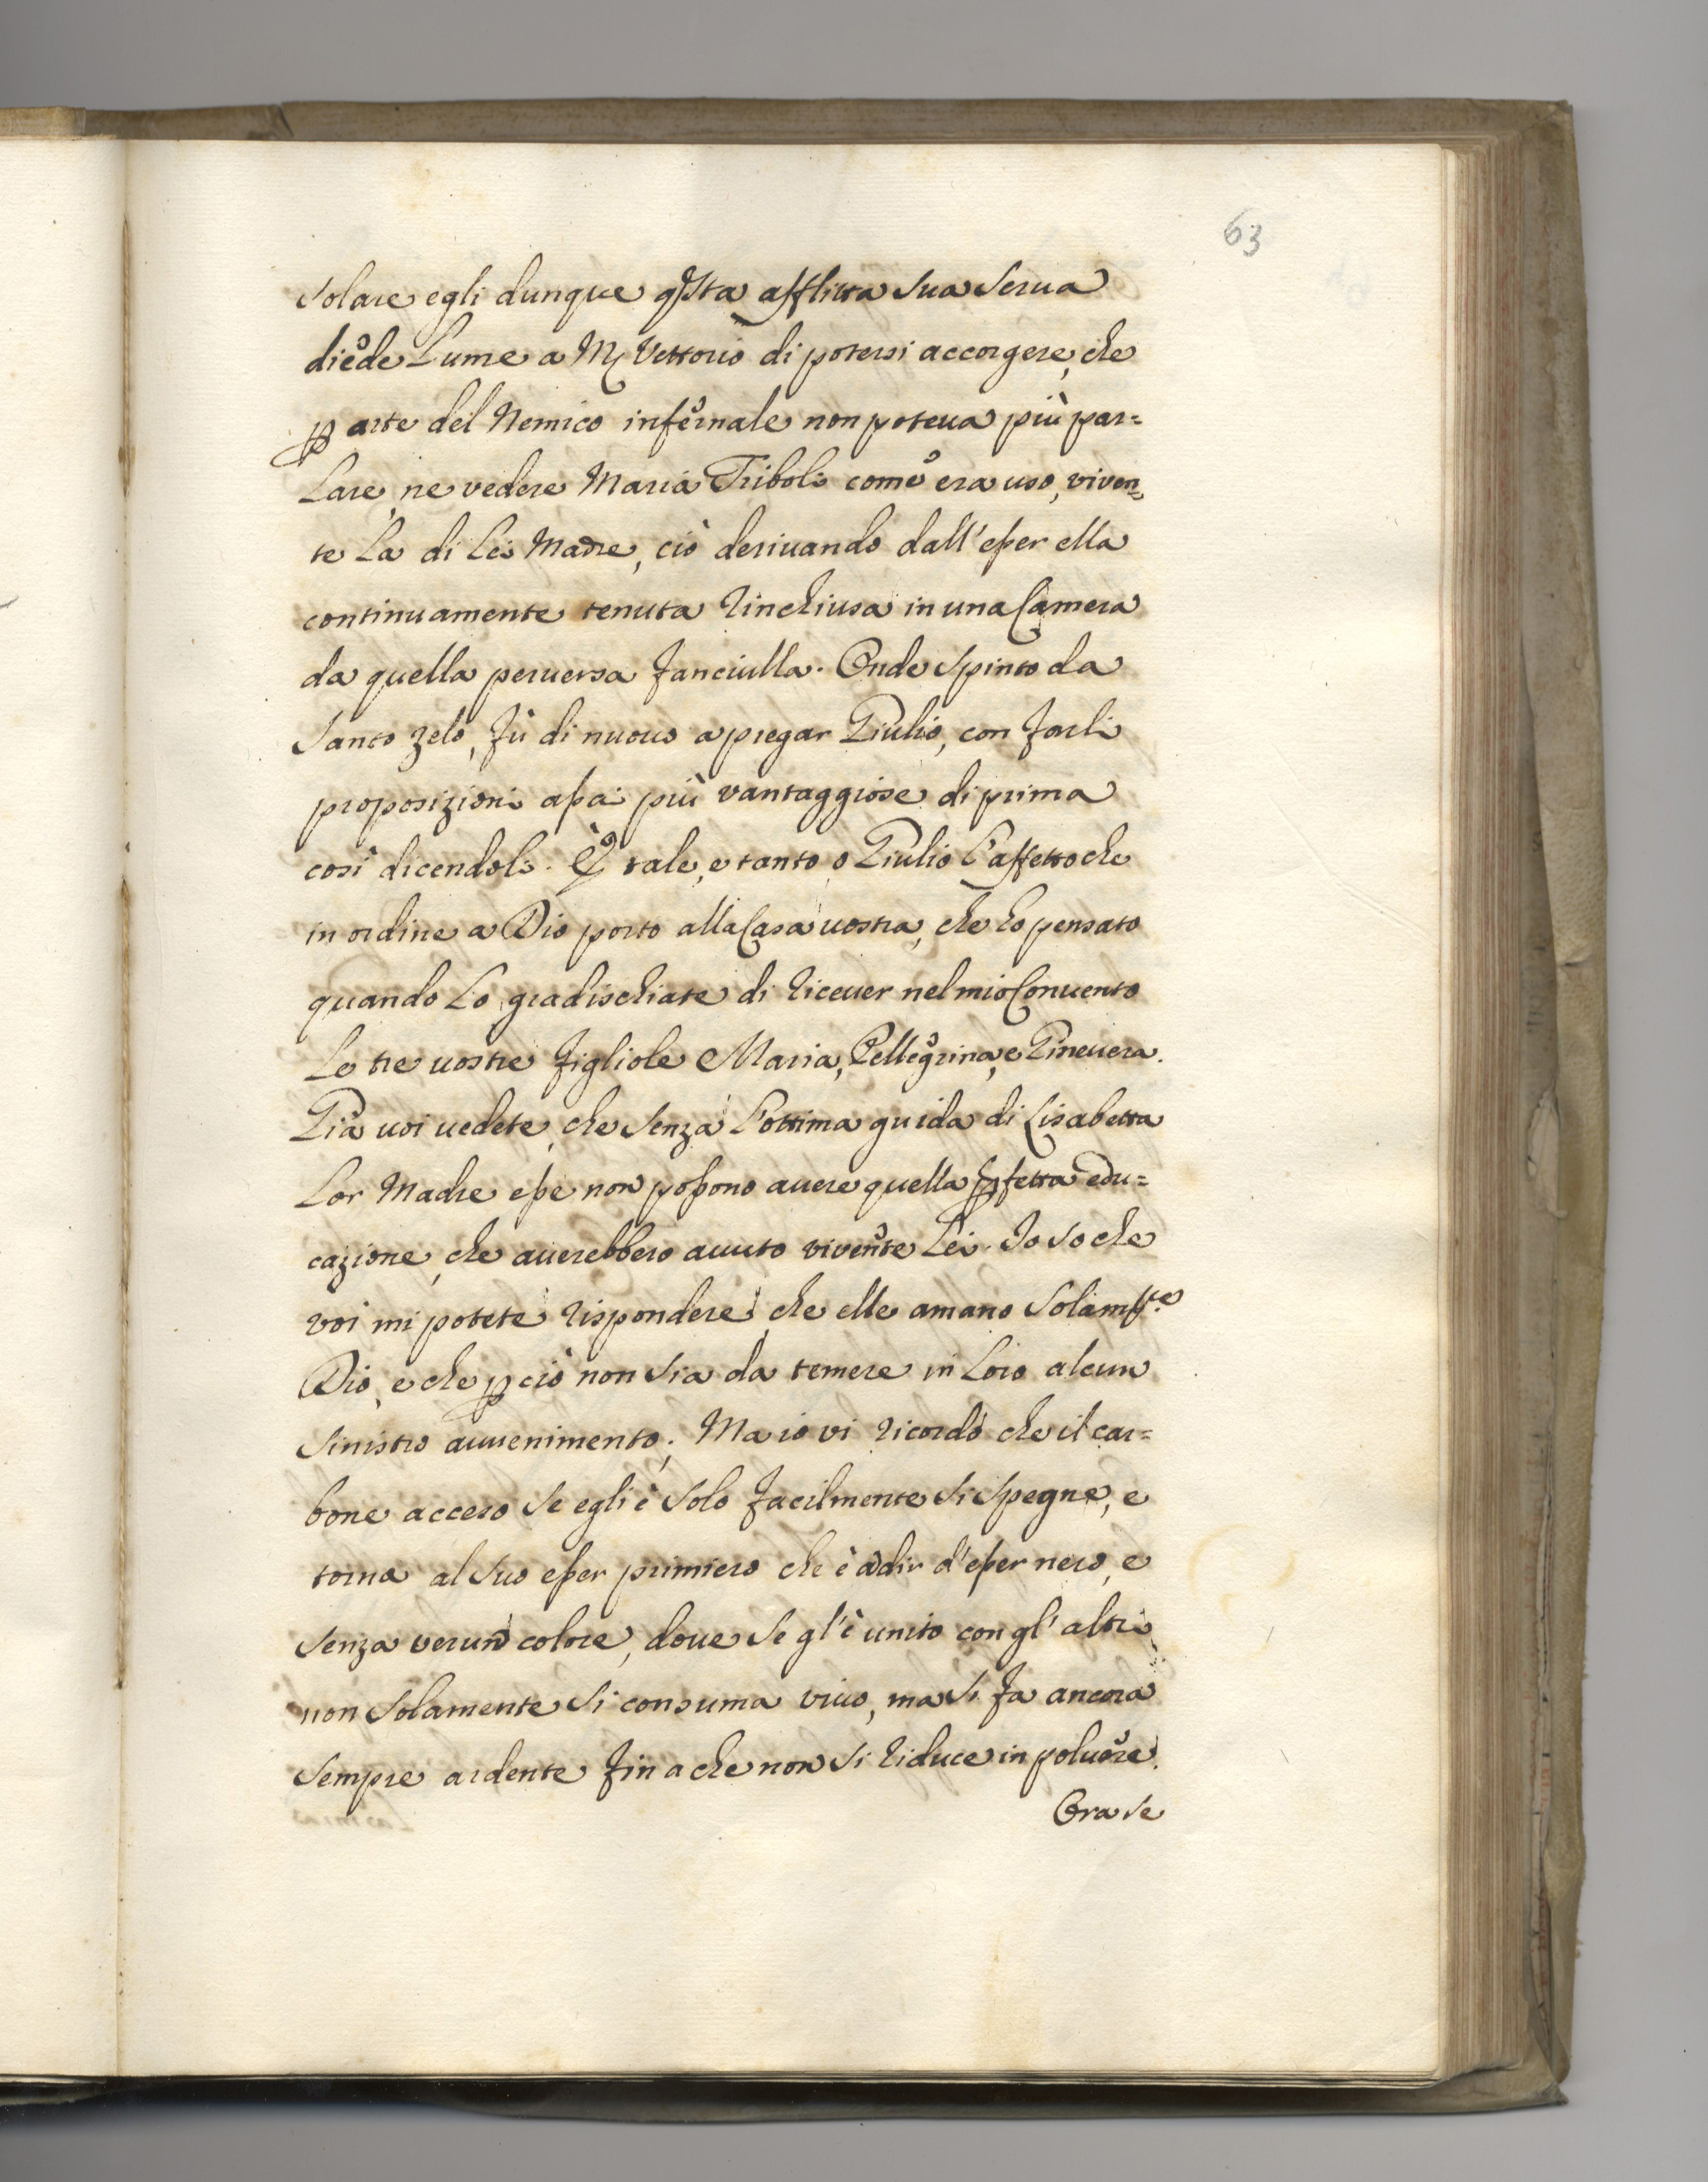 63
solare egli dunque qsta afflitta sua Serua
diede Lume a M. Vettorio di potersi accorgere, che
p arte del Nemico infernale non poteua più par=
Lare, ne vedere Maria Triboli come era uso, viven=
te La di Lei Madre, ciò deriuando dall'esser ella
continuamente tenuta rinchiusa in una Camera
da quella peruersa fanciulla. Onde spinto da
Santo zelo, fù di nuouo a pregar Giulio, con farli
proposizioni assai più vantaggiose di prima
così dicendoli. È tale, e tanto o Giulio l'affetto che
in ordine a Dio porto alla Casa uostra, che ho pensato
quando Lo gradischiate di riceuer nel mio Conuento
Le tre uostre figliole Maria, Pellegrina, e Gineuera.
Già uoi uedete, che senza l'ottima guida di Lisabetta
Lor Madre esse non possono auere quella pfetta edu=
cazione, che auerebbero auuto vivente Lei. Io so che
voi mi potete rispondere, che elle amano Solamte.
Dio, e che p ciò non sia da temere in Loro alcun
sinistro auuenimento; Ma io vi ricordo che il car=
bone acceso se egli è solo facilmente si spegne, e
torna al suo esser primiero che è a dir d'esser nero, e
senza verun colore, doue se gl'è unito con gl'altri
non solamente si consuma viuo, ma si fa ancora
sempre ardente fin a che non si riduce in poluere.
Ora se